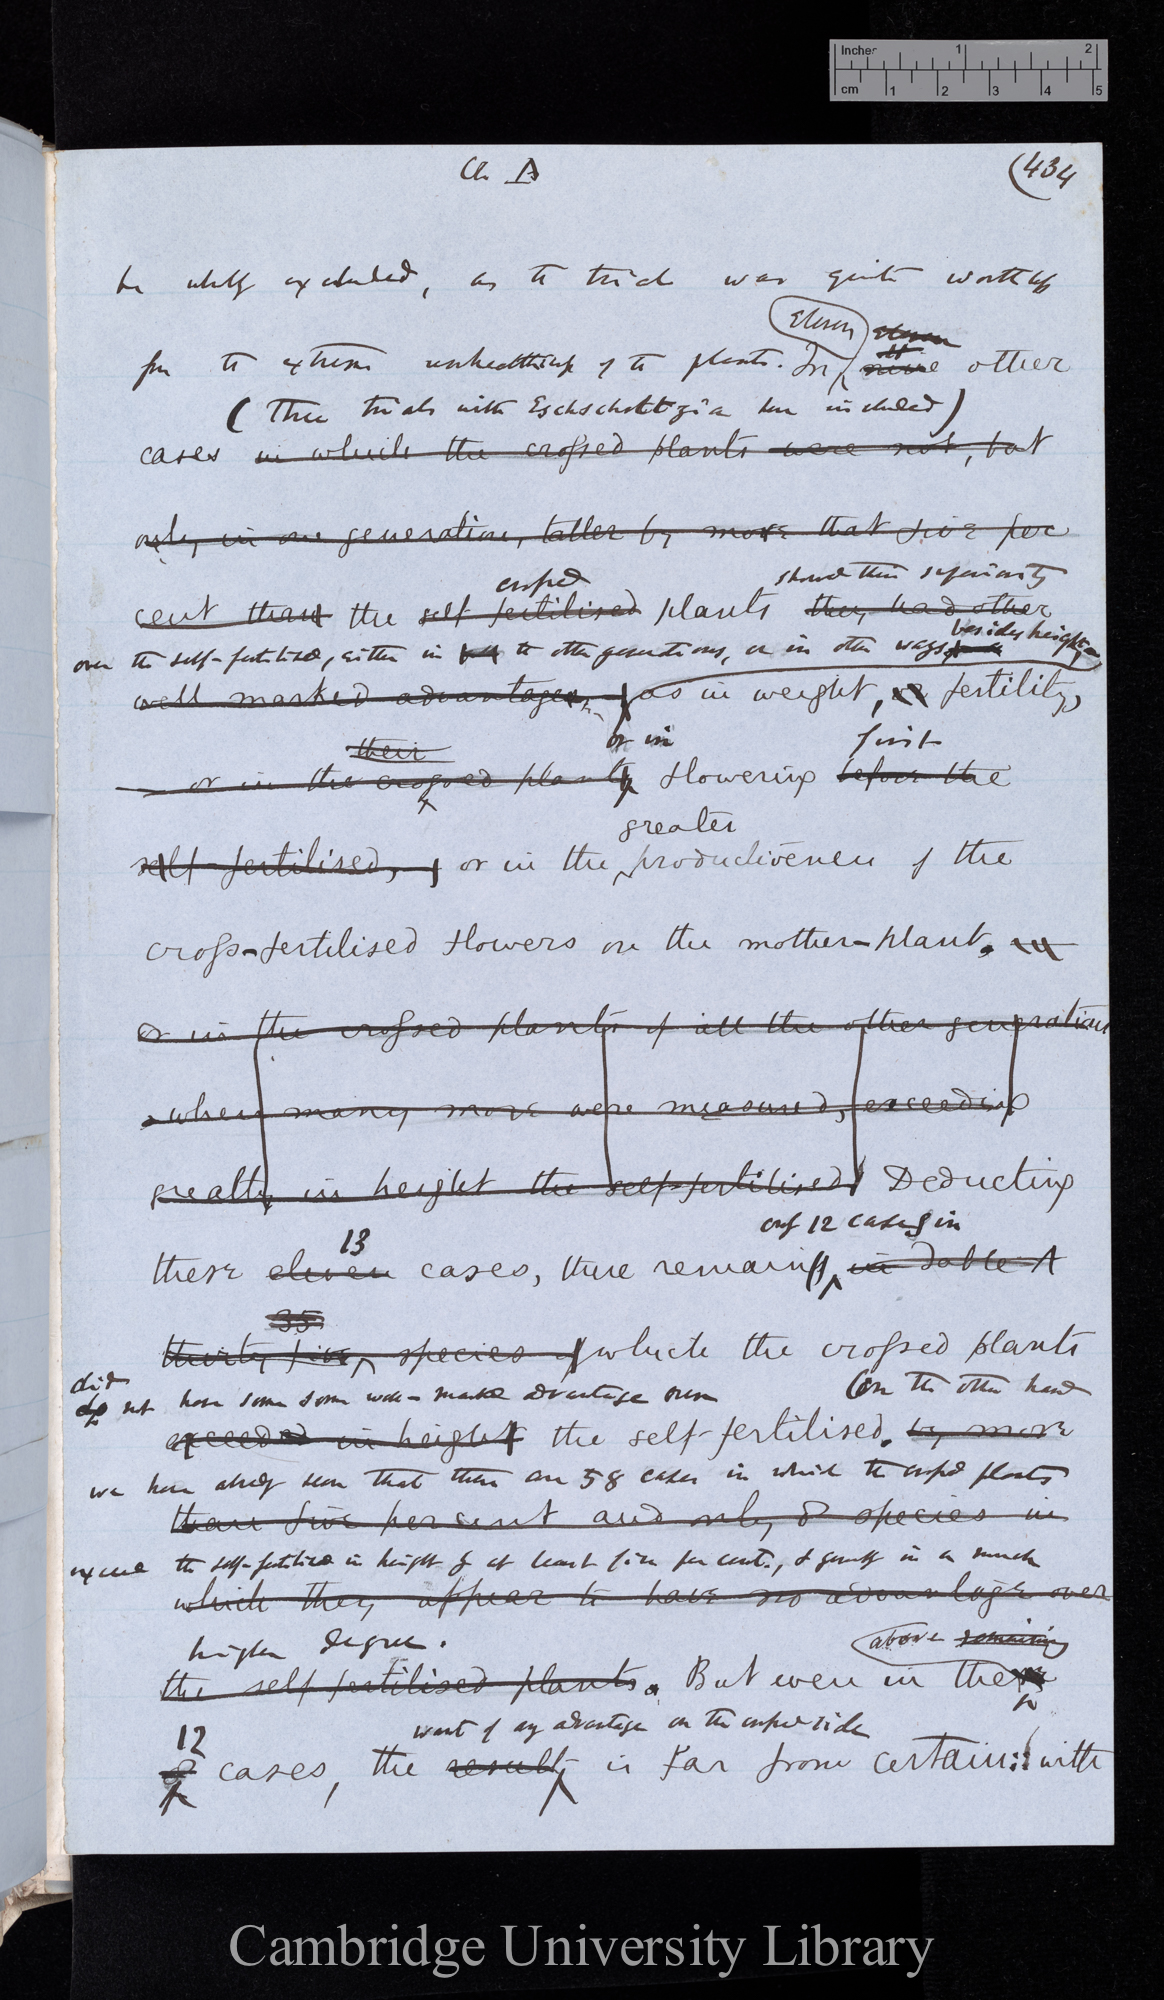 Ch. A
(434
be wholly excluded, as the trial was quite worthless
Eleven eleven
11
for the extreme unhealthiness of the plants. In nine other
(Three trials with Eschscholtzia here included)
cases in which the crossed plants were not, but
only in one generation, taller by more that five per
crossed showed their superiority
cent than the self fertilised plants they had other
over the self-fertilised, either in the other generations, or in other ways besides height,
well marked advantages, as in weight, or fertility,
their or in first
or in the crossed plants flowering before the
greater
self-fertilised, or in the productiveness of the
cross-fertilised flowers on the mother-plant.
or in the crossed plants of all the other generations
when many more were measured, exceeding
greatly in height the self-fertilised Deducting
13 only 12 cases in
these eleven cases, there remain in Table A
35
thirty five species which the crossed plants
did
do not have some some well-marked advantage over (On the other hand
exceeded in height the self-fertilised. by more
we have already seen that there are 58 cases in which the crossed plants
than five per cent and only 8 species in
exceed the self-fertilised in height by at least five per cent., & generally in a much
which they appear to have no advantage over
higher degree. above remaining
the self fertilised plants. But even in the
12 want of any advantage on the crossed side
8 cases, the result is far from certain: with
Inches 1 2
cm 1 2 3 4 5
Cambridge University Library